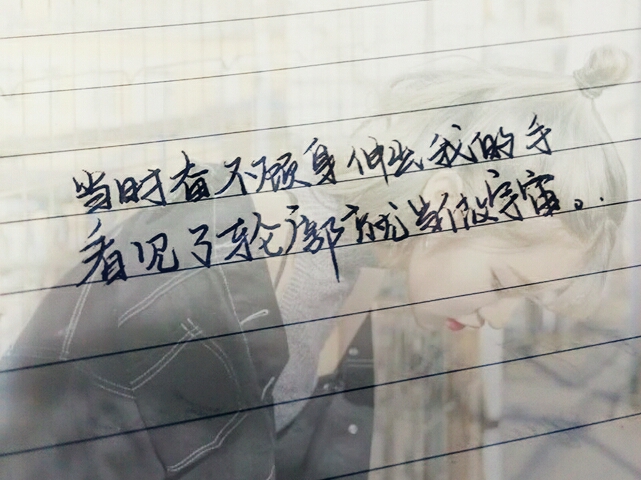 当时奋不顾身伸出我的手
看见了轮廓就当做宇宙。..